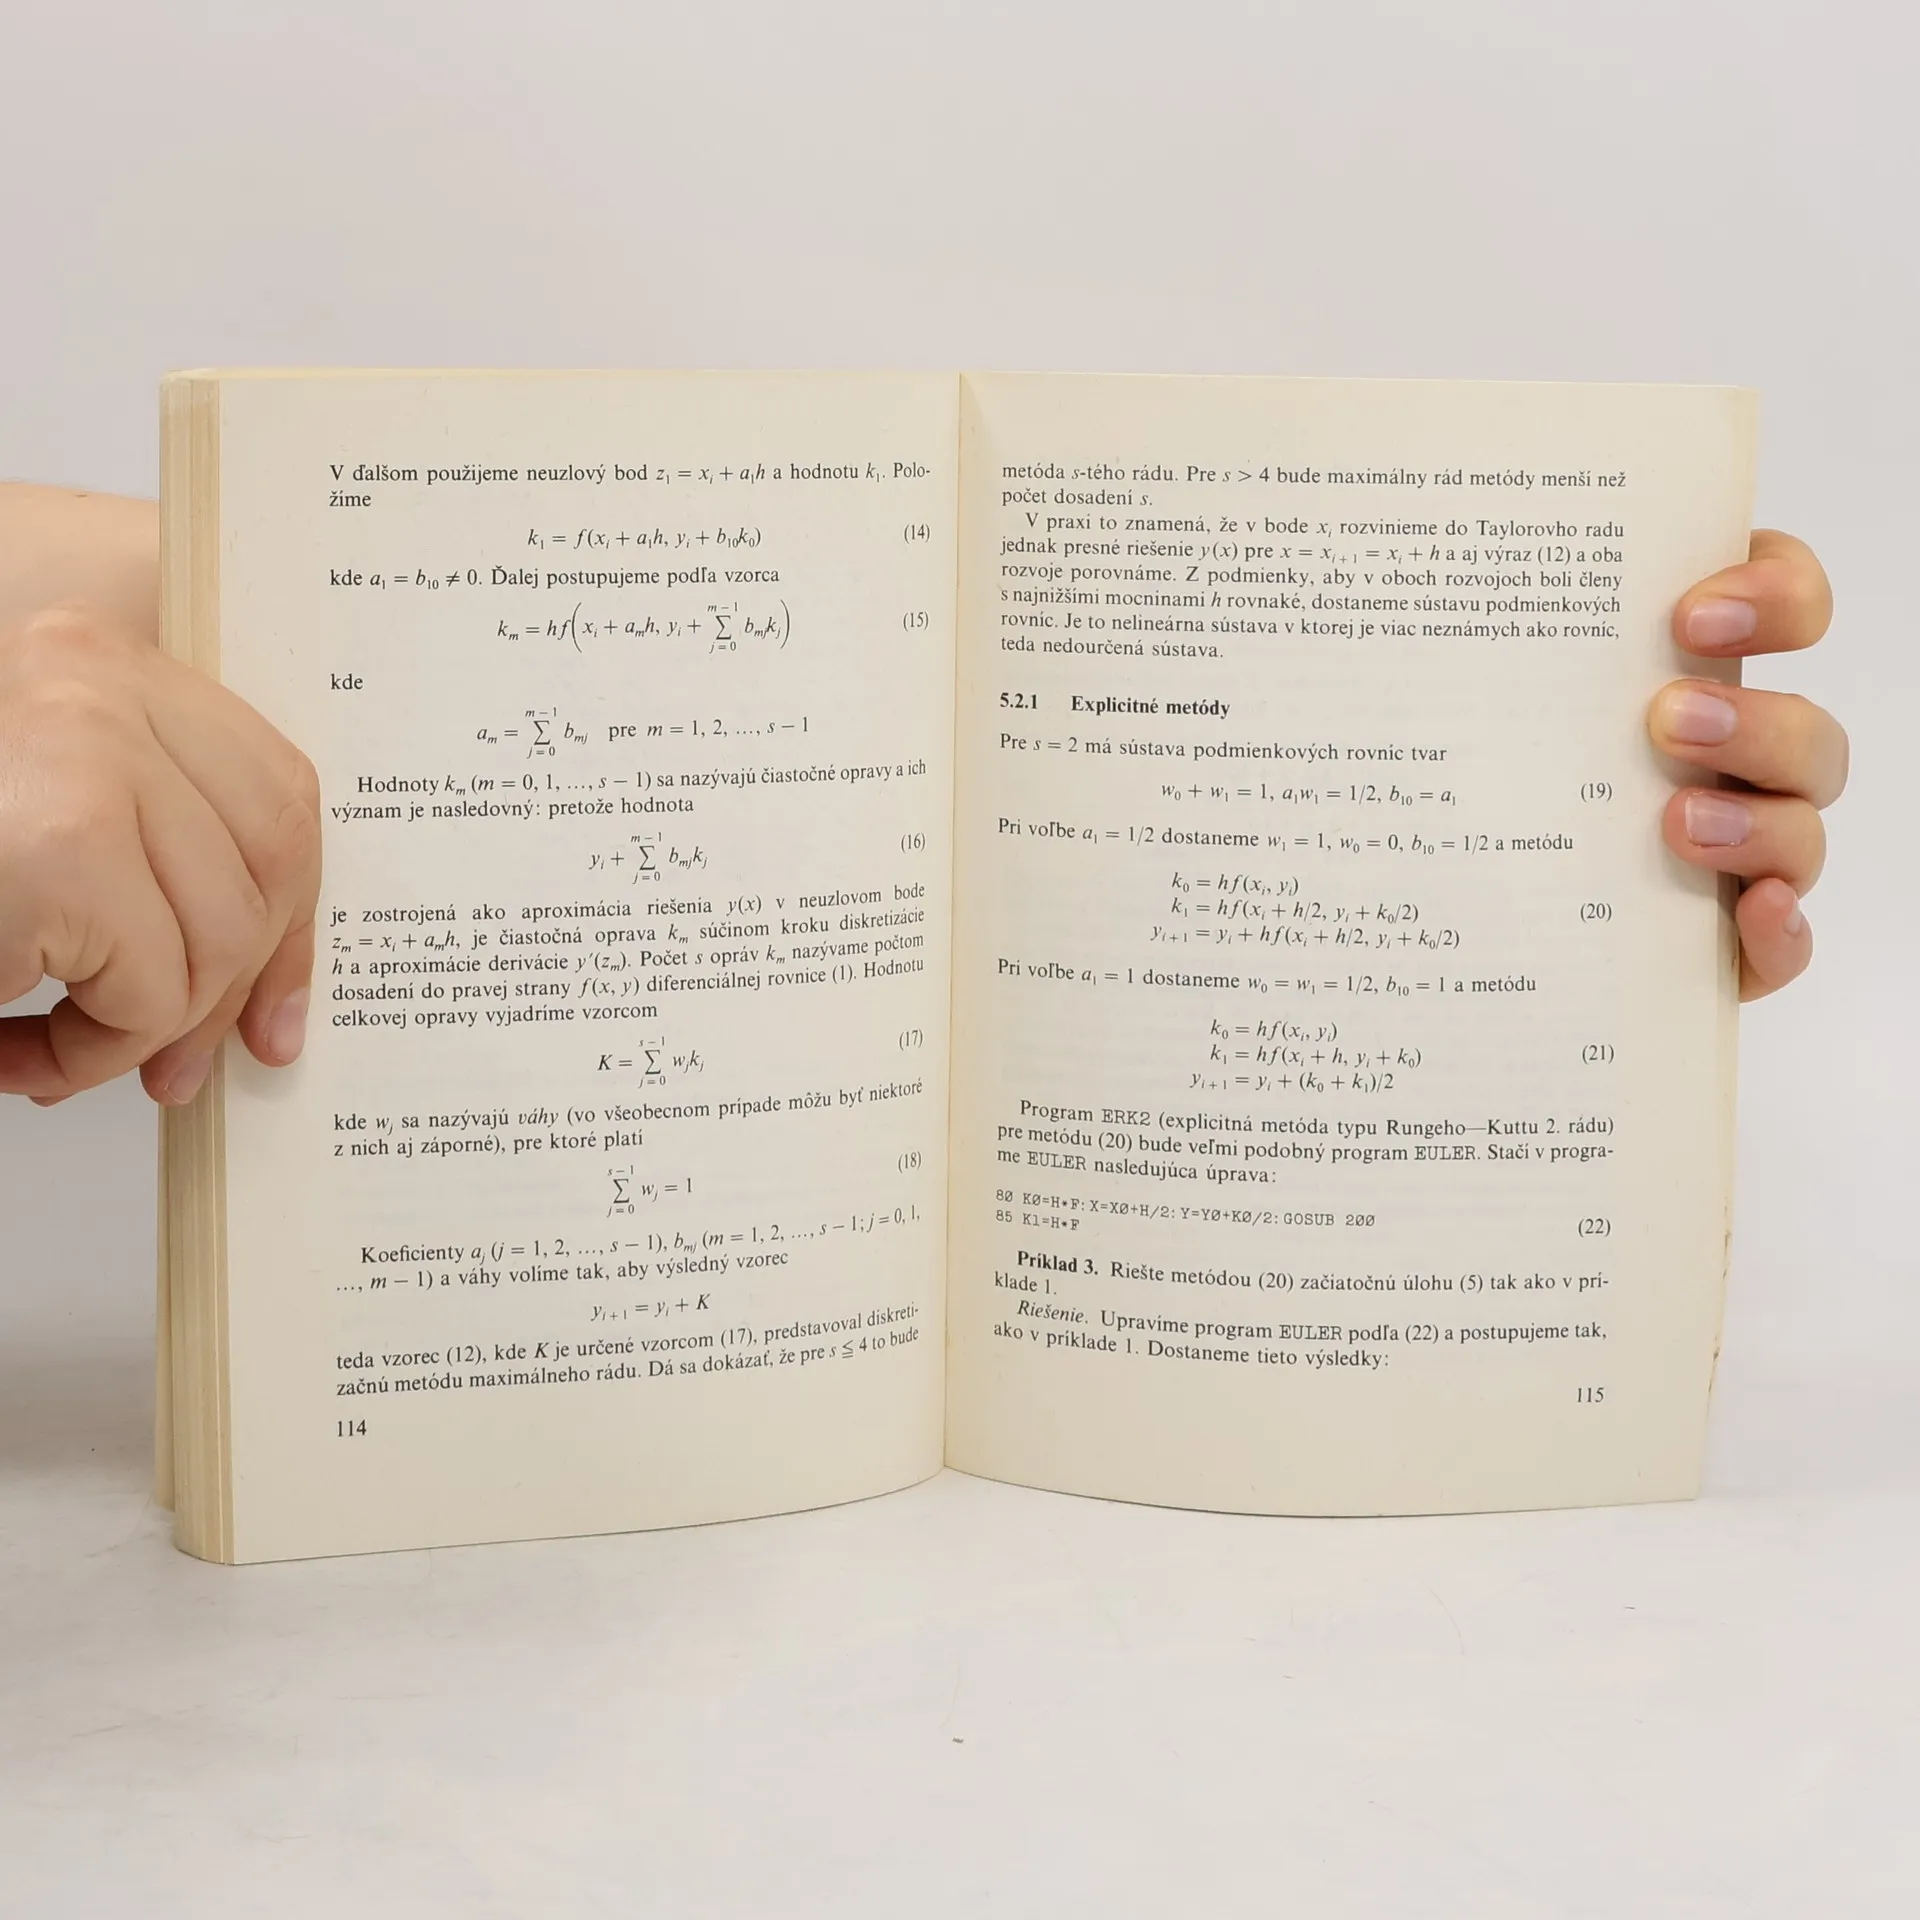 V ďalšom použijeme neuzlový bod z₁ = xᵢ + a₁h a hodnotu k₁. Polo-
žíme
k₁ = f(xᵢ + a₁h, yᵢ + b₁₀k₀) (14)
kde a₁ = b₁₀ ≠ 0. Ďalej postupujeme podľa vzorca
m − 1
kₘ = hf(xᵢ + aₘh, yᵢ + ∑ bₘⱼkⱼ) (15)
j = 0
kde
m − 1
aₘ = ∑ bₘⱼ pre m = 1, 2, ..., s − 1
j = 0
Hodnoty kₘ (m = 0, 1, ..., s − 1) sa nazývajú čiastočné opravy a ich
význam je nasledovný: pretože hodnota
m − 1
yᵢ + ∑ bₘⱼkⱼ (16)
j = 0
je zostrojená ako aproximácia riešenia y(x) v neuzlovom bode
zₘ = xᵢ + aₘh, je čiastočná oprava kₘ súčinom kroku diskretizácie
h a aproximácie derivácie y′(zₘ). Počet s opráv kₘ nazývame počtom
dosadení do pravej strany f(x, y) diferenciálnej rovnice (1). Hodnotu
celkovej opravy vyjadríme vzorcom
s − 1
K = ∑ wⱼkⱼ (17)
j = 0
kde wⱼ sa nazývajú váhy (vo všeobecnom prípade môžu byť niektoré
z nich aj záporné), pre ktoré platí
s − 1
∑ wⱼ = 1 (18)
j = 0
Koeficienty aⱼ (j = 1, 2, ..., s − 1), bₘⱼ (m = 1, 2, ..., s − 1; j = 0, 1,
..., m − 1) a váhy volíme tak, aby výsledný vzorec
yᵢ₊₁ = yᵢ + K
teda vzorec (12), kde K je určené vzorcom (17), predstavoval diskreti-
začnú metódu maximálneho rádu. Dá sa dokázať, že pre s ≦ 4 to bude
114
metóda s-tého rádu. Pre s > 4 bude maximálny rád metódy menší než
počet dosadení s.
V praxi to znamená, že v bode xᵢ rozvinieme do Taylorovho radu
jednak presné riešenie y(x) pre x = xᵢ₊₁ = xᵢ + h a aj výraz (12) a oba
rozvoje porovnáme. Z podmienky, aby v oboch rozvojoch boli členy
s najnižšími mocninami h rovnaké, dostaneme sústavu podmienkových
rovníc. Je to nelineárna sústava v ktorej je viac neznámych ako rovníc,
teda nedourčená sústava.
5.2.1 Explicitné metódy
Pre s = 2 má sústava podmienkových rovníc tvar
w₀ + w₁ = 1, a₁w₁ = 1/2, b₁₀ = a₁ (19)
Pri voľbe a₁ = 1/2 dostaneme w₁ = 1, w₀ = 0, b₁₀ = 1/2 a metódu
k₀ = hf(xᵢ, yᵢ)
k₁ = hf(xᵢ + h/2, yᵢ + k₀/2) (20)
yᵢ₊₁ = yᵢ + hf(xᵢ + h/2, yᵢ + k₀/2)
Pri voľbe a₁ = 1 dostaneme w₀ = w₁ = 1/2, b₁₀ = 1 a metódu
k₀ = hf(xᵢ, yᵢ)
k₁ = hf(xᵢ + h, yᵢ + k₀) (21)
yᵢ₊₁ = yᵢ + (k₀ + k₁)/2
Program ERK2 (explicitná metóda typu Rungeho—Kuttu 2. rádu)
pre metódu (20) bude veľmi podobný program EULER. Stačí v progra-
me EULER nasledujúca úprava:
80 K0=H*F: X=X0+H/2: Y=Y0+K0/2: GOSUB 200
85 K1=H*F (22)
Príklad 3. Riešte metódou (20) začiatočnú úlohu (5) tak ako v prí-
klade 1.
Riešenie. Upravíme program EULER podľa (22) a postupujeme tak,
ako v príklade 1. Dostaneme tieto výsledky:
115